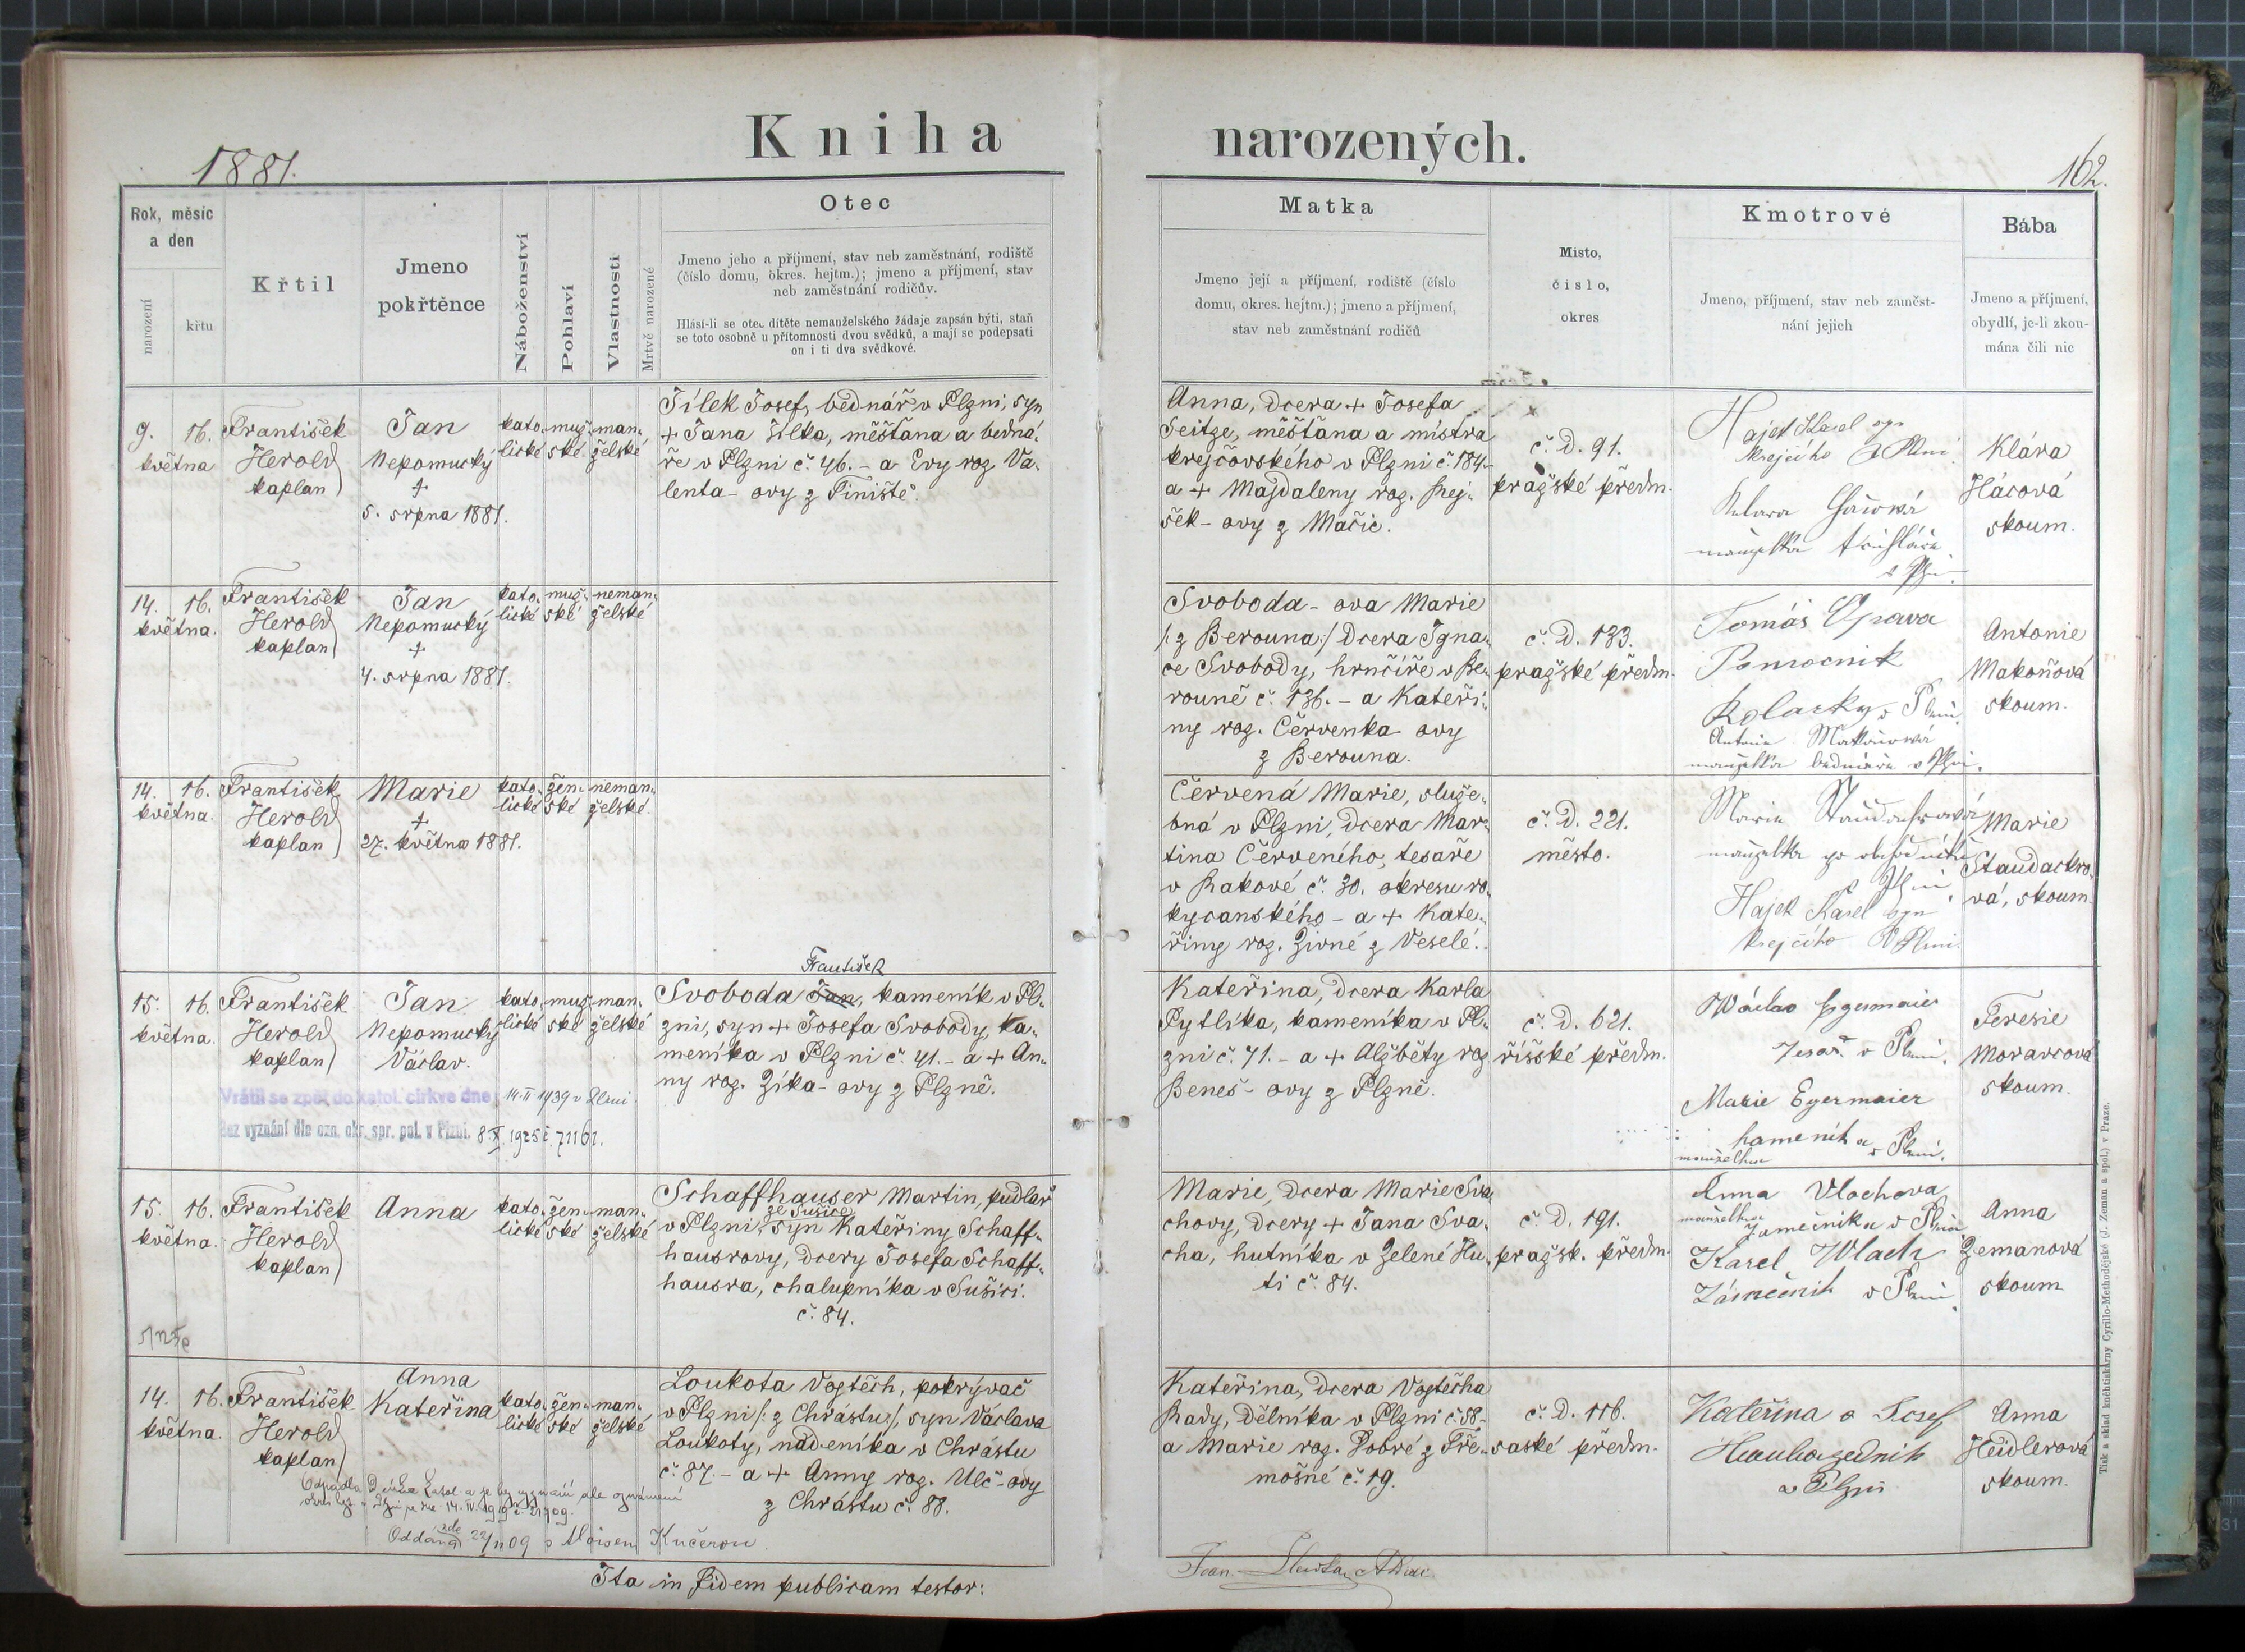 Kniha narozených.
1881.
162.
Rok, měsíc
a den
narození
křtu
Křtil
Jmeno
pokřtěnce
Náboženství
Pohlaví
Vlastnosti
Mrtvě narozené
Otec
Jmeno jeho a příjmení, stav neb zaměstnání, rodiště
(číslo domu, okres. hejtm.); jmeno a příjmení, stav
neb zaměstnání rodičův.
Hlásí-li se otec dítěte nemanželského žádaje zapsán býti, staň
se toto osobně u přítomnosti dvou svědků, a mají se podepsati
on i ti dva svědkové.
Matka
Jmeno její a příjmení, rodiště (číslo
domu, okres. hejtm.); jmeno a příjmení,
stav neb zaměstnání rodičů
Místo,
číslo,
okres
Kmotrové
Jmeno, příjmení, stav neb zaměst-
nání jejich
Bába
Jmeno a příjmení,
obydlí, je-li zkou-
mána čili nic
9. 16.
května
František
Herold
kaplan
Jan
Nepomucký
+
5. srpna 1881.
kato-
lické
muž-
ské
man-
želské
Jílek Josef, bednář v Plzni, syn
+ Jana Jílka, měšťana a bedná-
ře v Plzni č. 46. - a Evy roz. Va-
lenta - ovy z Tiniště.
Anna, dcera + Josefa
Seitze, měšťana a mistra
krejčovského v Plzni č. 184.-
a + Majdaleny roz. Rej-
ček - ovy z Mačic.
č. D. 91.
pražské předm.
Hajek Karel syn
krejcího z Plzni
Klara
manželka truhláře
v Plzni.
Klára
Hácová
skoum.
14. 16.
května.
František
Herold
kaplan
Jan
Nepomucký
+
4. srpna 1881.
kato-
lické
muž-
ské
neman-
želské
Svoboda - ova Marie
/: z Berouna :/ dcera Igna-
ce Svobody, hrnčíře v Be-
rouně č. 136. - a Kateři-
ny roz. Červenka - ovy
z Berouna.
č. D. 133.
pražské předm.
Tomáš Oprava
Pomocnik
Kolařky v Plzni.
Antonie Makoňová
manželka bednáře v Plzni.
Antonie
Makoňová
skoum.
14. 16.
května.
František
Herold
kaplan
Marie
+
27. května 1881.
kato-
lické
žen-
ské
neman-
želské.
Červená Marie, služe-
bná v Plzni, dcera Mar-
tina Červeného, tesaře
v Rakové č. 30. okresu ro-
kycanského - a + Kate-
řiny roz. Živné z Veselé.
č. D. 221.
město.
Marie
manželka po
v Plzni
Hajek Karel syn
krejčího v Plzni.
Marie
Staudackro-
vá, skoum.
15. 16.
května.
František
Herold
kaplan
Jan
Nepomucký
Václav.
kato-
lické
muž-
ské
man-
želské
František
Svoboda Jan, kameník v Pl-
zni, syn + Josefa Svobody, ka-
meníka v Plzni č. 41. - a + An-
ny roz. Zíka - ovy z Plzně.
Vrátil se zpět do katol. církve dne 14. II 1939 v Plzni.
Bez vyznání dle ozn. okr. spr. pol. v Plzni. 8. X. 1925 č. 71161.
Kateřina, dcera Karla
Pytlíka, kameníka v Pl-
zni č. 71. - a + Alžběty roz
Beneš - ovy z Plzně.
č. D. 621.
říšské předm.
Wáclav Egermaier
Tesař v Plzni.
Marie Egermaier
manželka kameníka v Plzni.
Teresie
Moravcová
skoum.
15. 16.
května.
František
Herold
kaplan
Anna
kato-
lické
žen-
ské
man-
želské
Schaffhauser Martin, pudlař
ze Sušice
v Plzni, syn Kateřiny Schaff-
hausrovy, dcery Josefa Schaff-
hausra, chalupníka v Sušici.
č. 84.
Marie, dcera Marie Sva-
chovy, dcery + Jana Sva-
cha, hutníka v Zelené Hu-
ti č. 84.
č. D. 191.
pražsk. předm.
Anna Vlachova
manželka zamečníka v Plzni
Karel Wlach
Zámečník v Plzni.
Anna
Zemanová
skoum
14. 16.
května.
František
Herold
kaplan
Anna
Kateřina
kato-
lické
žen-
ské
man-
želské
Loukota Vojtěch, pokrývač
v Plzni /: z Chrástu :/, syn Václava
Loukoty, nádeníka v Chrástu
č. 87. - a + Anny roz. Ulč - ovy
z Chrástu č. 88.
Oddána zde 22/11 09 s Aloisem Kučerou.
Kateřina, dcera Vojtěcha
Rady, dělníka v Plzni č. 58.-
a Marie roz. Dobré z Tře-
mošné č. 19.
č. D. 116.
saské předm.
Kateřina a Josef
v Plzni
Anna
Heidlerová
skoum.
Ita in fidem publicam testor:
Tisk a sklad knihtiskárny Cyrillo-Methodějské (J. Zeman a spol.) v Praze.